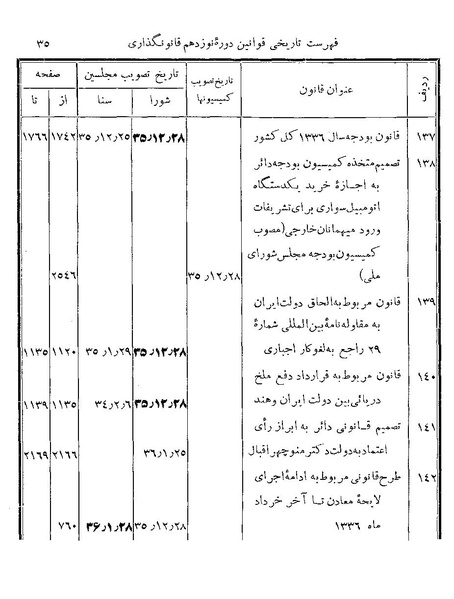 فهرست تاریخی قوانین دورهٔ نوزدهم قانونگذاری ۳۵
ردیف عنوان قانون تاریخ تصویب کمیسیونها تاریخ تصویب مجلسین صفحه
شورا سنا از تا
۱۳۷ قانون بودجه سال ۱۳۳۶ کل کشور ۳۵/۱۲/۲۸ ۳۵/۱۲/۲۵ ۱۷۴۲ ۱۷۶۶
۱۳۸ تصمیم متخذه کمیسیون بودجه دائر
به اجازهٔ خرید یکدستگاه
اتومبیل سواری برای تشریفات
ورود میهمانان خارجی (مصوب
کمیسیون بودجه مجلس شورای
ملی) ۳۵/۱۲/۲۸ ۲۵۴۶
۱۳۹ قانون مربوط به الحاق دولت ایران
به مقاوله نامهٔ بین المللی شمارهٔ
۲۹ راجع به لغو کار اجباری ۳۵/۱۲/۲۸ ۳۵/۱/۲۹ ۱۱۲۰ ۱۱۳۵
۱۴۰ قانون مربوط به قرارداد دفع ملخ
دریائی بین دولت ایران و هند ۳۵/۱۲/۲۸ ۳۴/۲/۶ ۱۱۳۵ ۱۱۳۹
۱۴۱ تصمیم قانونی دائر به ابراز رأی
اعتماد به دولت دکتر منوچهر اقبال ۳۶/۱/۲۵ ۲۱۶۶ ۲۱۶۹
۱۴۲ طرح قانونی مربوط به ادامهٔ اجرای
لایحهٔ معادن تا آخر خرداد
ماه ۱۳۳۶ ۳۵/۱۲/۲۸ ۳۶/۱/۲۸ ۷۶۰